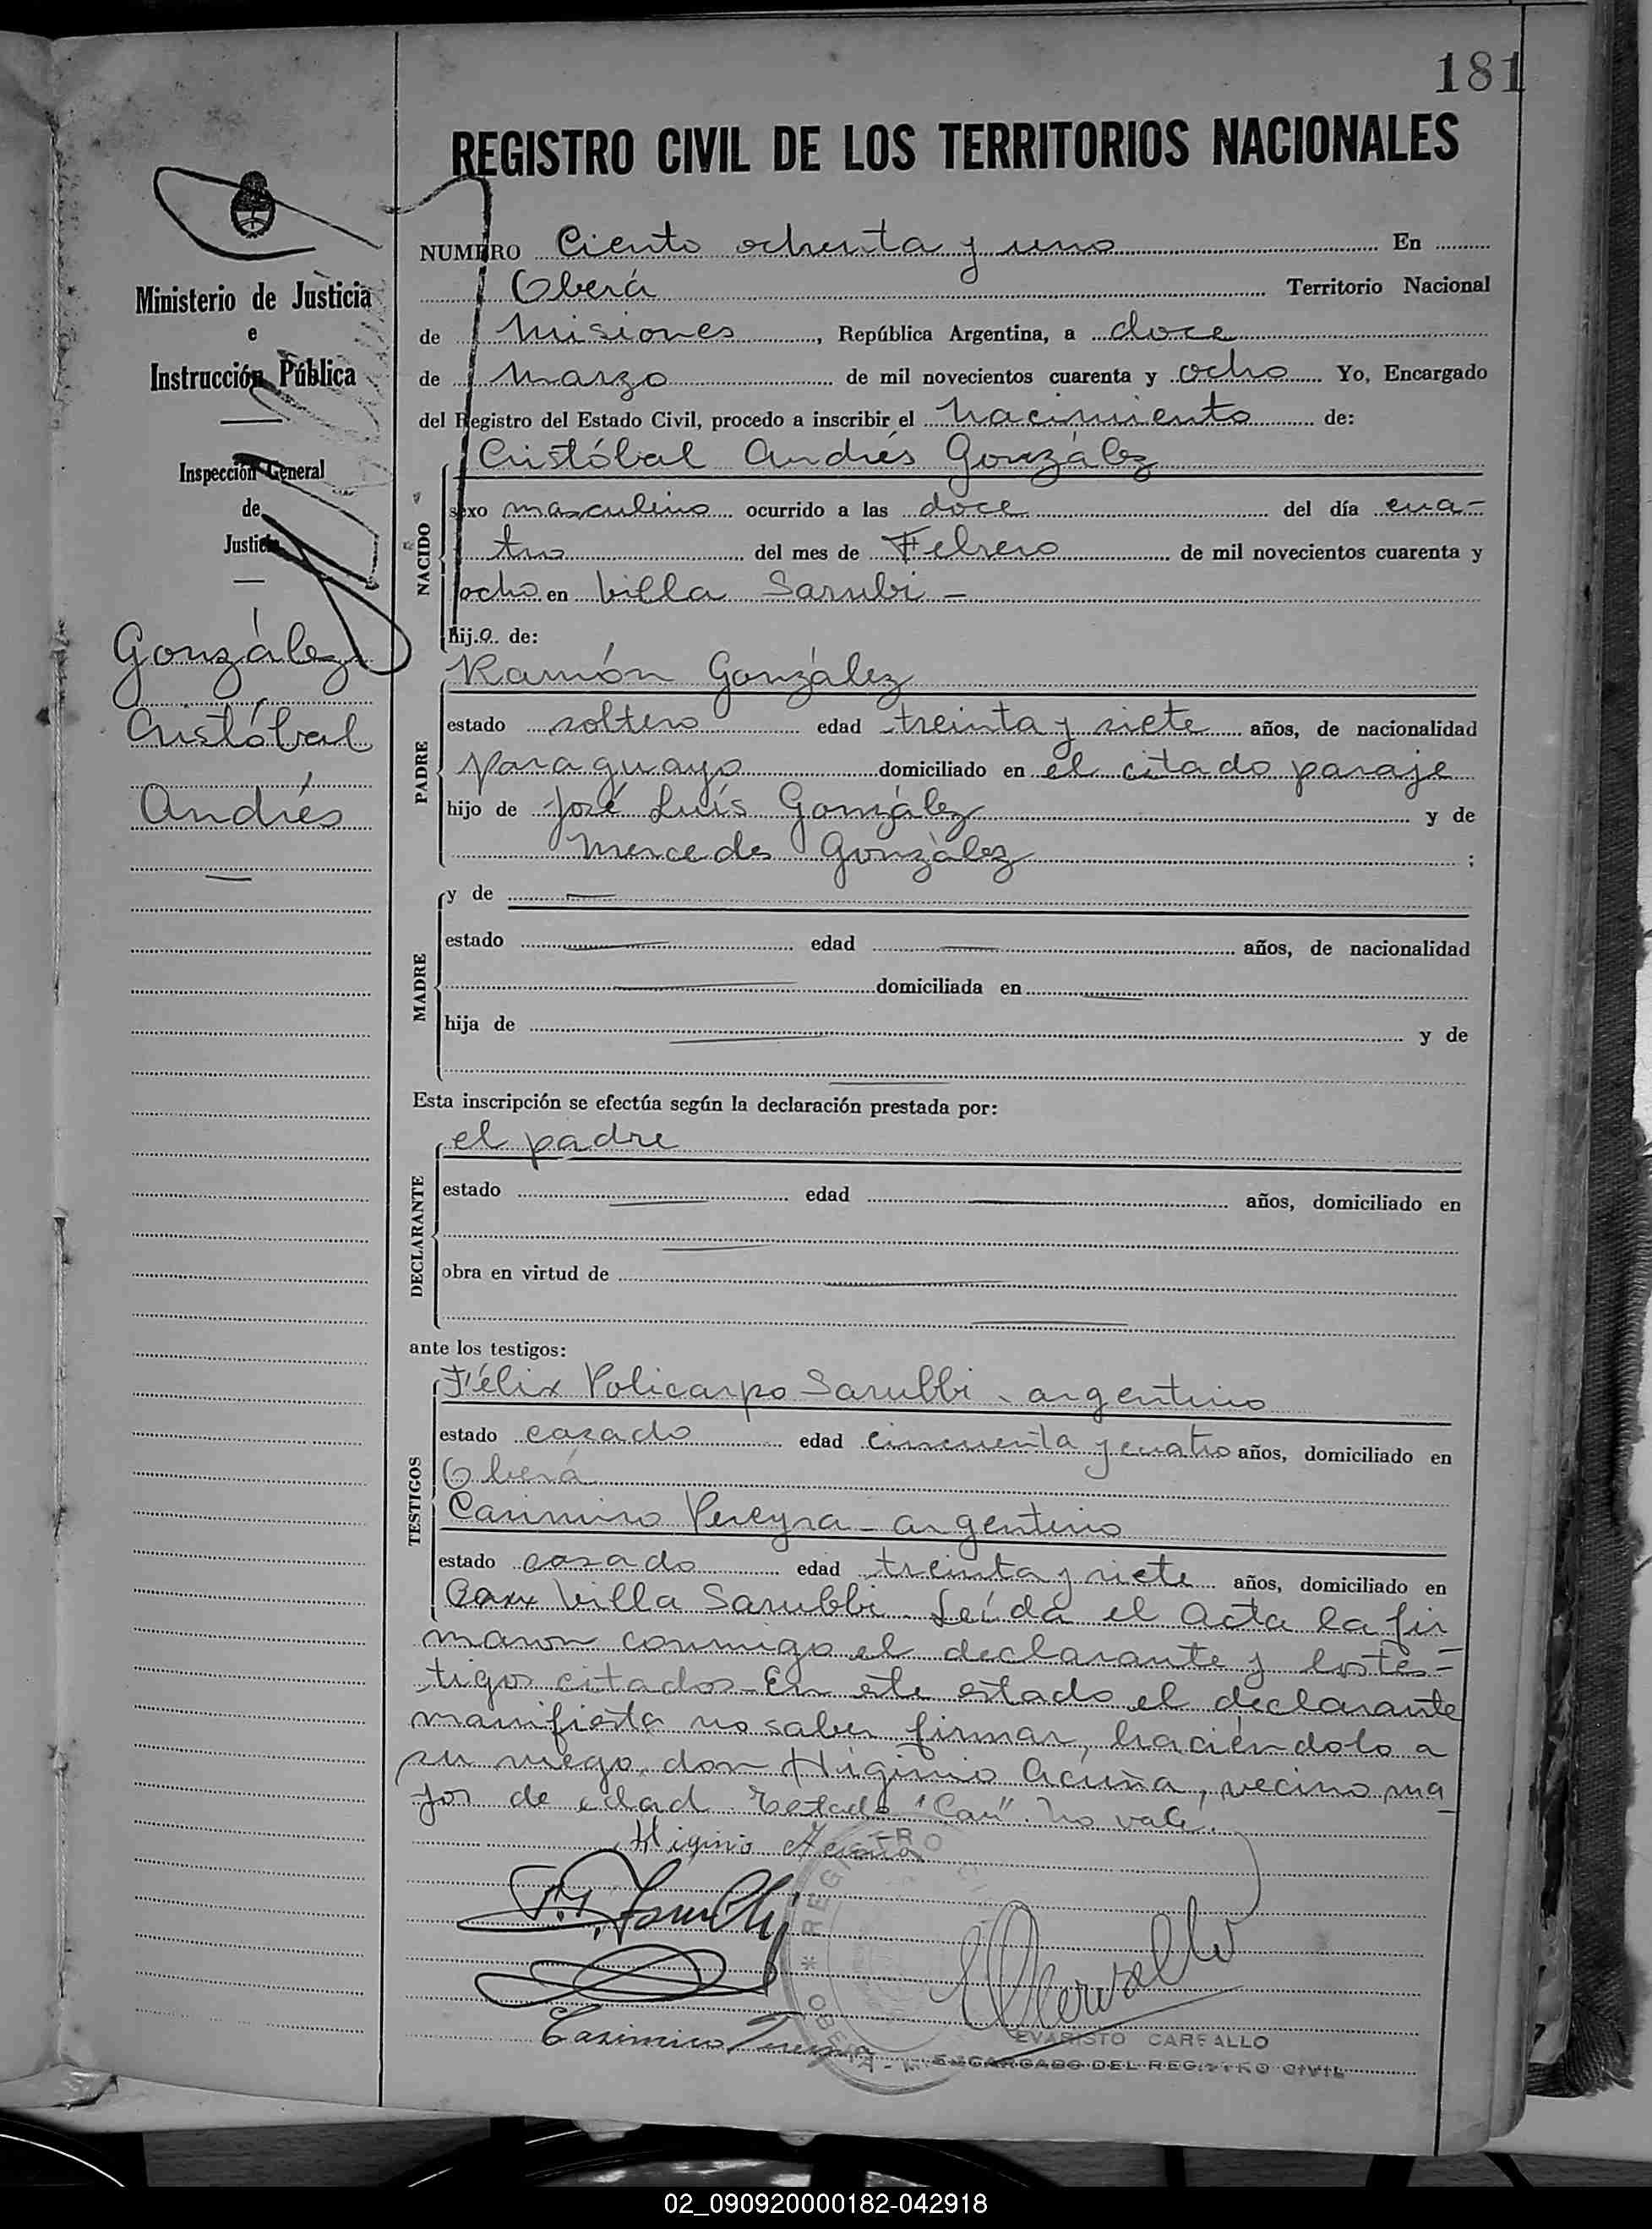 181
REGISTRO CIVIL DE LOS TERRITORIOS NACIONALES
Ministerio de Justicia
e
Instrucción Pública
Inspección General
de
Justicia
González
Cristóbal
Andrés
NUMERO Ciento ochenta y uno En
Oberá Territorio Nacional
de Misiones, República Argentina, a doce
de Marzo de mil novecientos cuarenta y ocho Yo, Encargado
del Registro del Estado Civil, procedo a inscribir el nacimiento de:
NACIDO
Cristóbal Andrés González
sexo masculino ocurrido a las doce del día cua-
tro del mes de Febrero de mil novecientos cuarenta y
ocho en Villa Sarubi -
hijo de:
PADRE
Ramón González
estado soltero edad treinta y siete años, de nacionalidad
paraguayo domiciliado en el citado paraje
hijo de José Luís González y de
Mercedes González ;
MADRE
y de —
estado — edad — años, de nacionalidad
— domiciliada en —
hija de — y de
—
Esta inscripción se efectúa según la declaración prestada por:
DECLARANTE
el padre
estado — edad — años, domiciliado en
—
obra en virtud de —
—
ante los testigos:
TESTIGOS
Félix Policarpo Sarubbi - argentino
estado casado edad cincuenta y cuatro años, domiciliado en
Oberá
Casimiro Pereyra - argentino
estado casado edad treinta y siete años, domiciliado en
Villa Sarubbi. Leída el Acta la fir
maron conmigo el declarante y los tes-
tigos citados - En este estado el declarante
manifiesta no saber firmar, haciéndolo a
su ruego don Higinio Acuña, vecino ma
yor de edad. Testado "Cau". No vale.
Higinio Acuña
Casimiro
REGISTRO
OBERÁ
EVARISTO CARVALLO
ENCARGADO DEL REGISTRO CIVIL
02_090920000182-042918